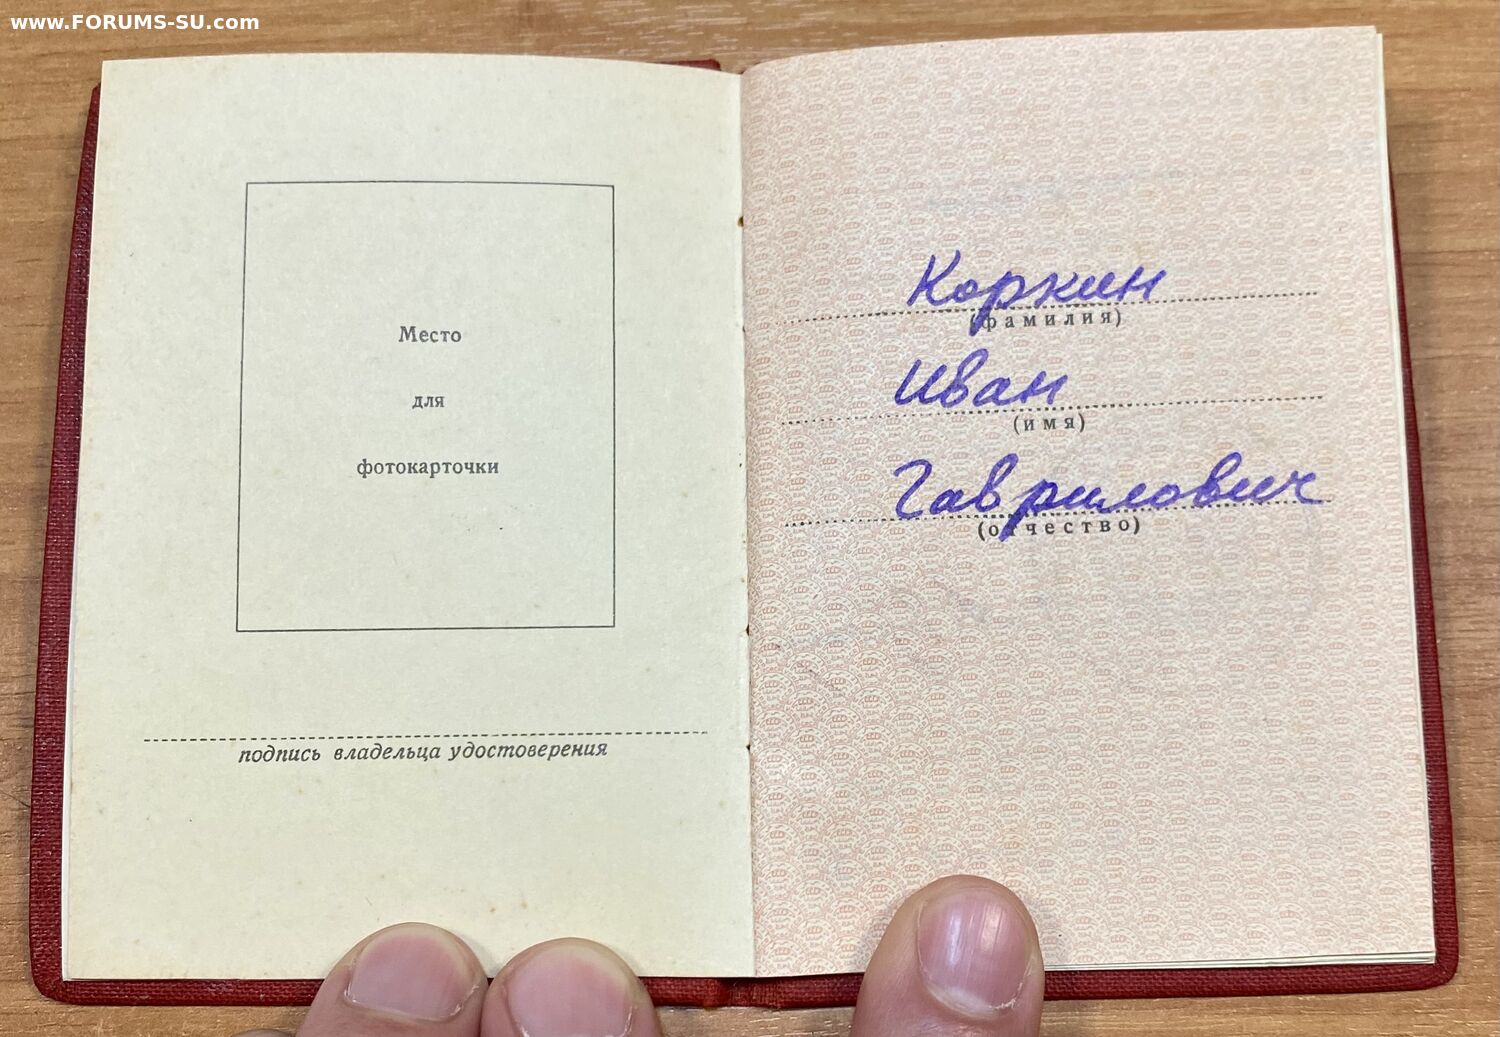 www.FORUMS-SU.com
Место
для
фотокарточки
подпись владельца удостоверения
Коркин
(фамилия)
Иван
(имя)
Гаврилович
(отчество)